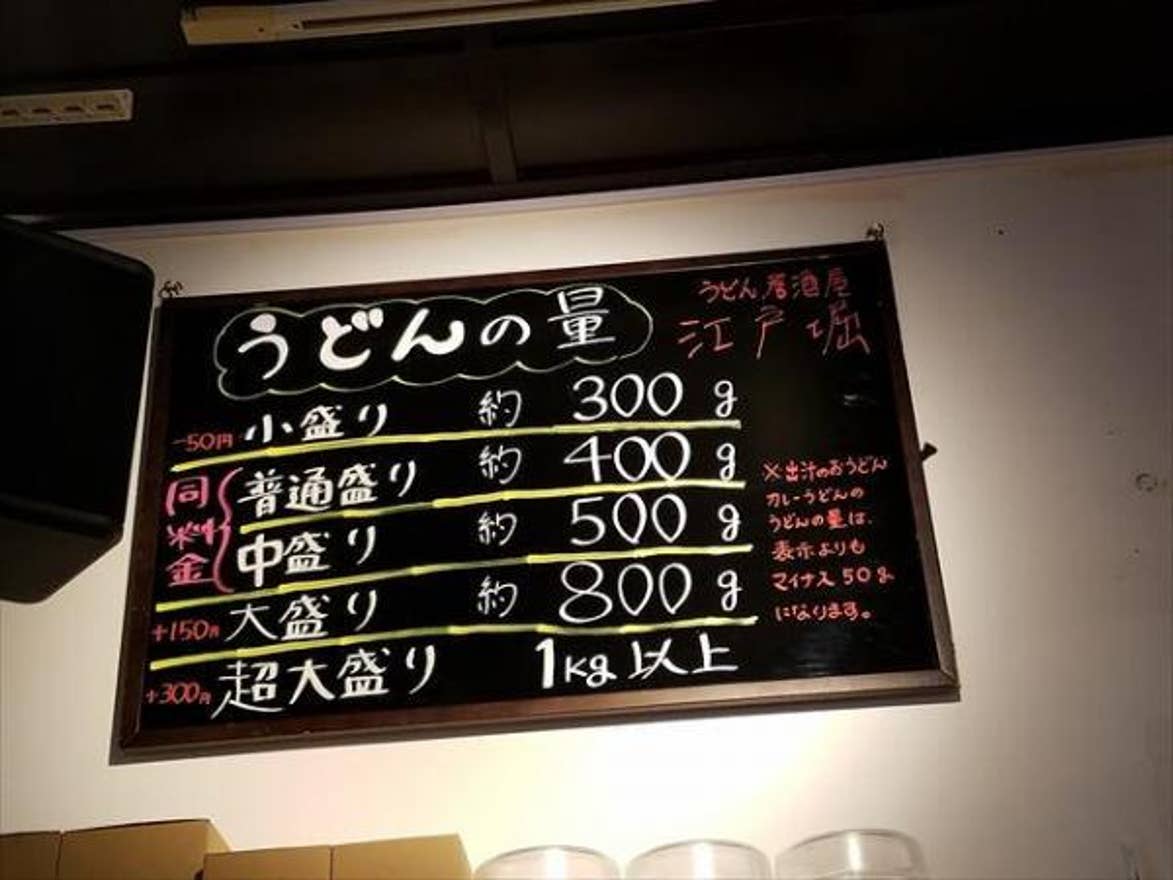 うどんの量
うどん居酒屋
江戸堀
-50円 小盛り 約 300g
同料金
普通盛り 約 400g
中盛り 約 500g
+150円 大盛り 約 800g
+300円 超大盛り 1kg以上
※出汁のおうどん
カレーうどんの
うどんの量は、
表示よりも
マイナス50g
になります。